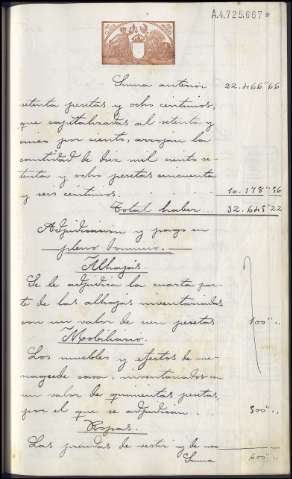 A.4.725.667*
Suma anterior 22.466"66
setenta pesetas y ocho céntimos,
que capitalizadas al setenta y
cinco por ciento, arrojan la
cantidad de diez mil ciento se-
tenta y ocho pesetas cincuenta
y seis céntimos. 10.178"56
Total haber 32.645"22
Adjudicación y pago en
pleno dominio.
Alhajas
Se le adjudica la cuarta par-
te de las alhajas inventariadas
con un valor de cien pesetas 100"
Mobiliario.
Los muebles y efectos de me-
nage de casa, inventariados en
un valor de quinientas pesetas,
por el que se adjudican 500"
Ropas.
Las prendas de vestir y de
Suma 600"